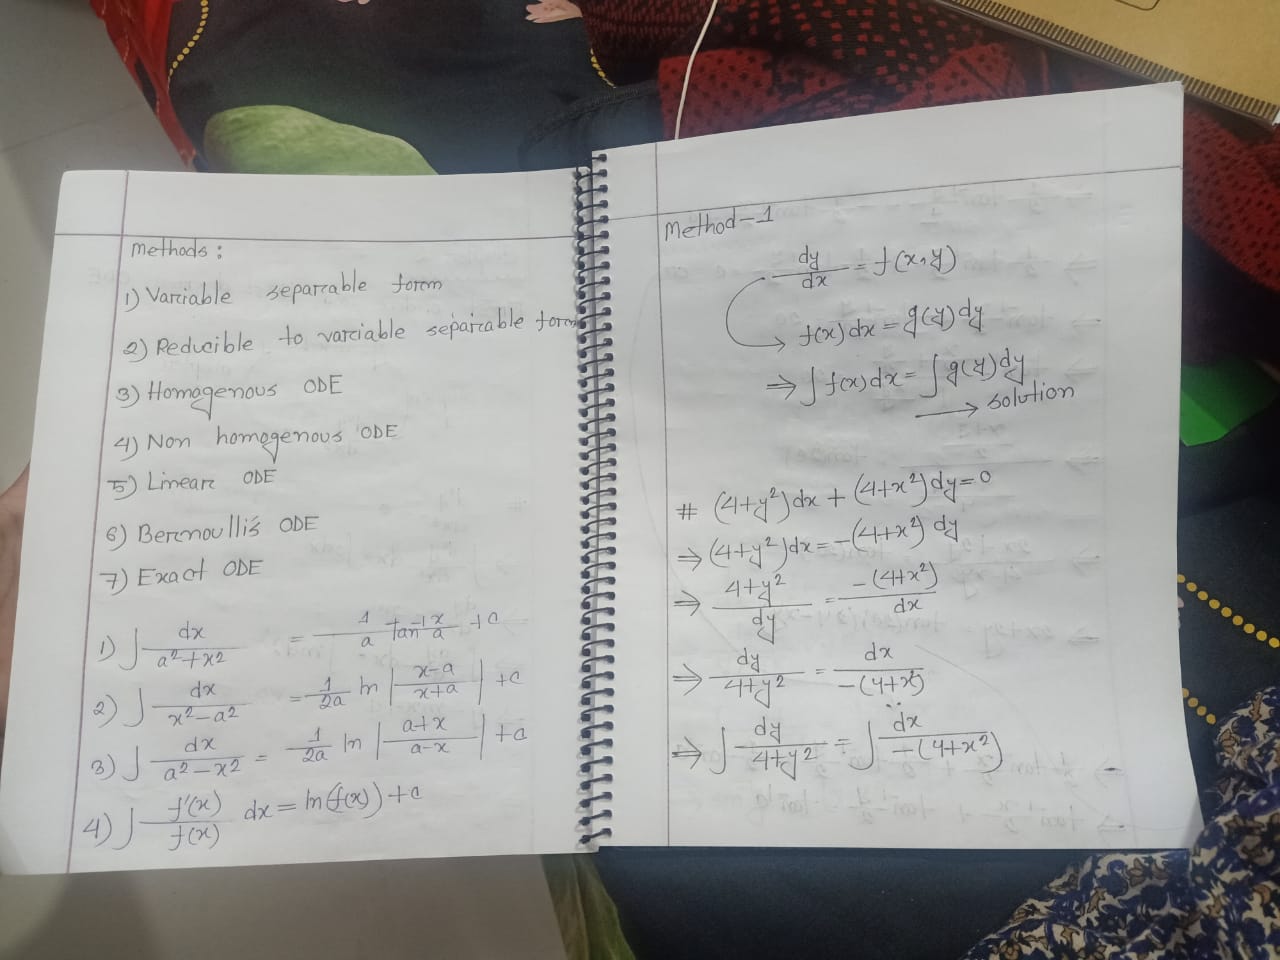 Methods:
1) Variable separable form
2) Reducible to variable separable form
3) Homogenous ODE
4) Non homogenous ODE
5) Linear ODE
6) Bernoulli's ODE
7) Exact ODE
1) ∫ dx/(a²+x²) = 1/a tan⁻¹ x/a + c
2) ∫ dx/(x²-a²) = 1/2a ln |(x-a)/(x+a)| + c
3) ∫ dx/(a²-x²) = 1/2a ln |(a+x)/(a-x)| + c
4) ∫ f'(x)/f(x) dx = ln(f(x)) + c
Method-1
dy/dx = f(x,y)
f(x)dx = g(y)dy
⇒ ∫ f(x)dx = ∫ g(y)dy
→ solution
# (4+y²)dx + (4+x²)dy = 0
⇒ (4+y²)dx = -(4+x²) dy
⇒ (4+y²)/dy = -(4+x²)/dx
⇒ dy/(4+y²) = dx/-(4+x²)
⇒ ∫ dy/(4+y²) = ∫ dx/-(4+x²)